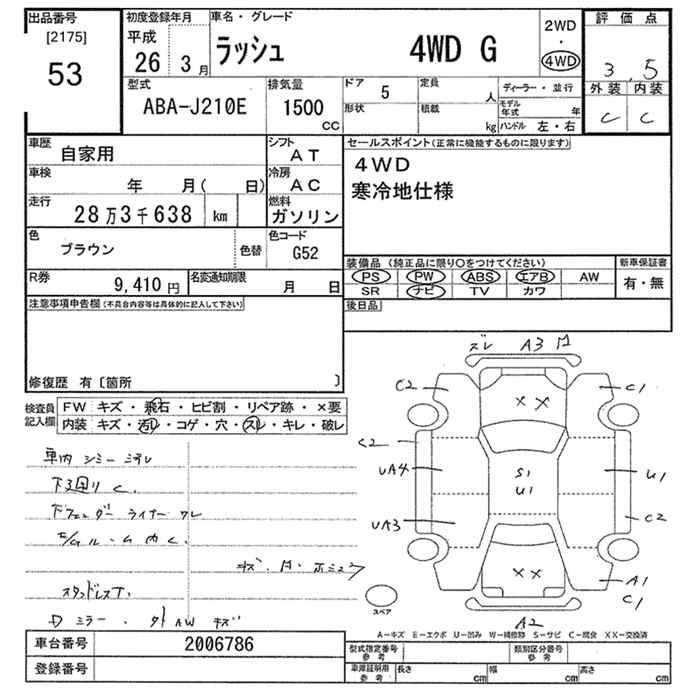 出品番号
[2175]
53
初度登録年月
平成
26 3月
車名・グレード
ラッシュ 4WD G
2WD
・
4WD
評価点
3.5
外装 内装
C C
型式
ABA-J210E
排気量
1500
CC
ドア 5
形状
定員 人
積載 kg
ディーラー・並行
モデル年式 年
ハンドル 左・右
車歴
自家用
シフト
AT
車検
年 月( 日)
冷房
AC
走行
28万3千638 km
燃料
ガソリン
色
ブラウン
色替
色コード
G52
R券
9,410円
名変通知期限
月 日
セールスポイント(正常に機能するものに限ります)
4WD
寒冷地仕様
装備品(純正品に限り○をつけてください)
PS PW ABS エアB AW
SR ナビ TV カワ
新車保証書
有・無
後日品
注意事項申告欄(不具合内容等は具体的に記入して下さい)
修復歴 有〔箇所 〕
検査員
記入欄
FW キズ・飛石・ヒビ割・リペア跡・×要
内装 キズ・汚レ・コゲ・穴・スレ・キレ・破レ
車内 シミ
下廻り C.
下フェンダーライナー ワレ
スタッドレスT.
D ミラー・ AW キズ
ズレ A3
C2 C1
XX
C2
UA4 S1 U1
U1
UA3 C2
XX
A1
C1
A2
スペア
A-キズ E-エクボ U-凹み W-補修跡 S-サビ C-腐食 XX-交換済
車台番号 2006786
登録番号
型式指定番号
参考
類別区分番号
参考
車庫証明用
参考
長さ cm 幅 cm 高さ cm